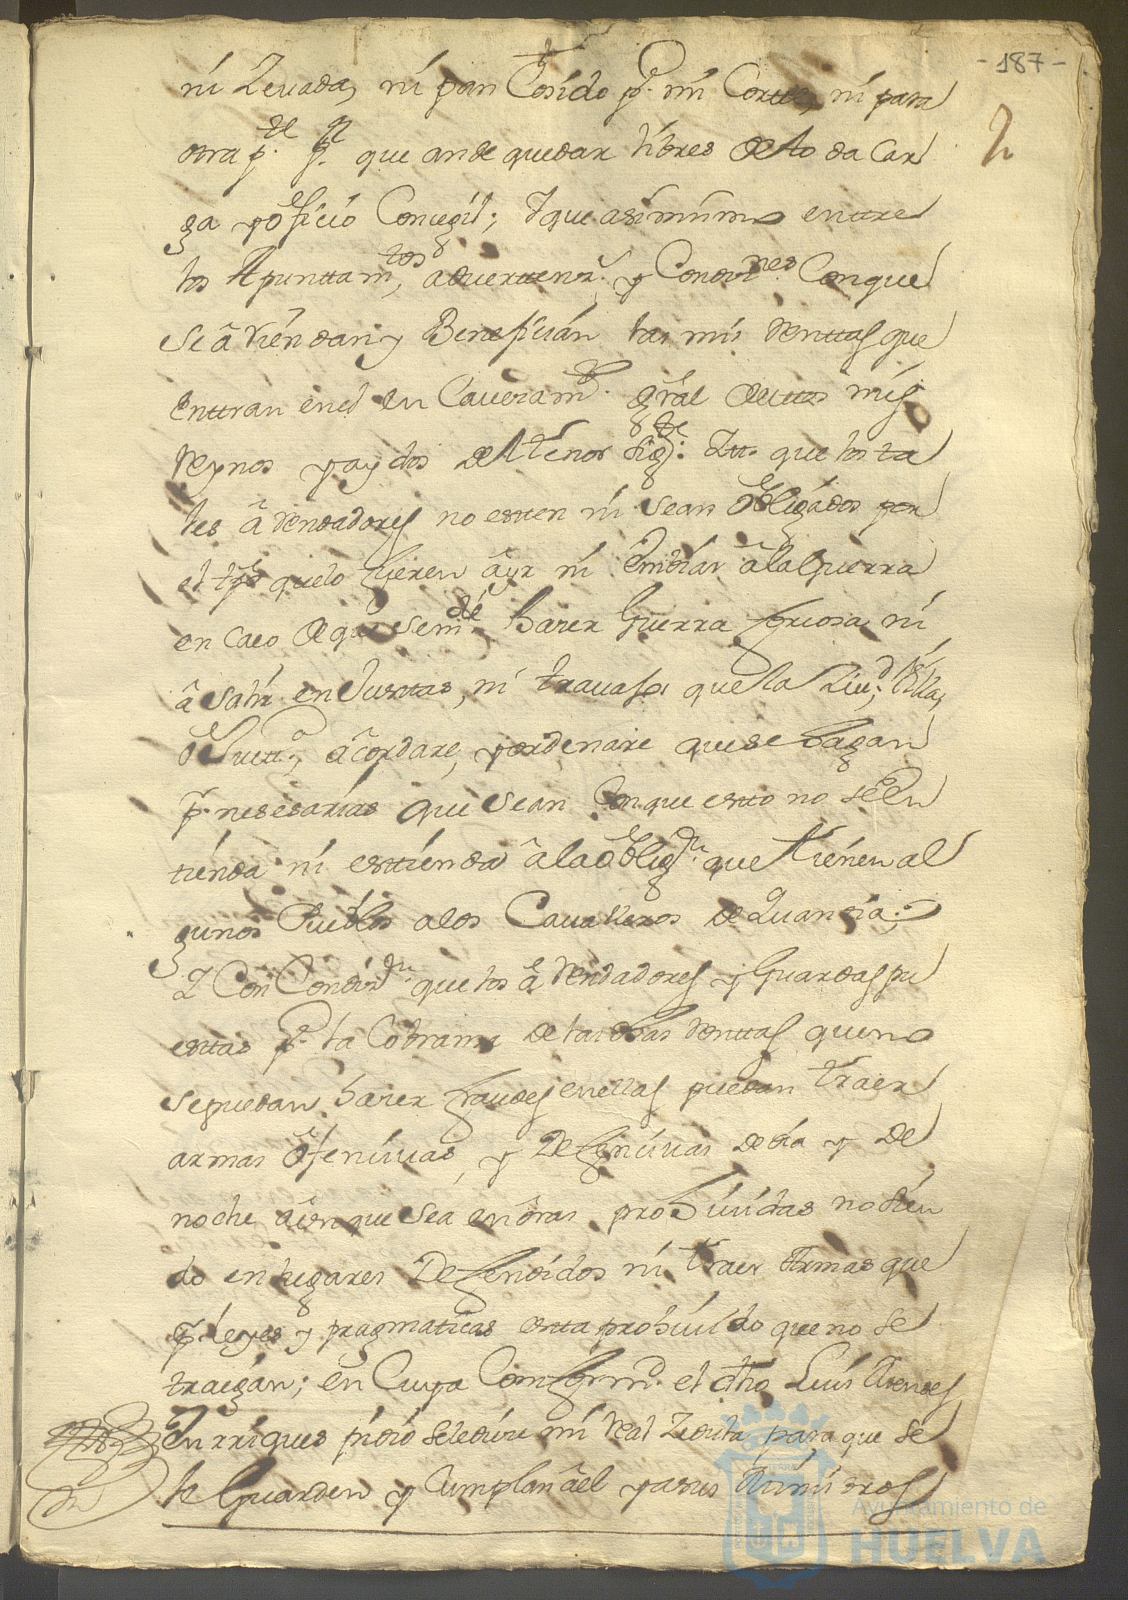 -187-
ni Zevada, ni pan Cosido pr. mi Corte, ni para
otra pte. pr. que an de quedar libres de toda Car
ga y ofiçio Conçegil; Y que asimismo entre
los Apuntamtos, advertenz.s y Condiznes Con que
se ãRiendan y Benefiçian las mis Renttas que
enttran en el en Cavezamto. gral de ttos mis
Reynos y ay dos del tenor sigte: Ytt. que los ta
les ã Rendadores no esten ni sean obligados por
el tpo que lo fueren ã yr ni embiar ã la guerra
en caso de que se mde hazer Guerra forzosa, ni
ã salir en Juntas, ni travajos que la Ziud, Villa,
o Puertto, ãcordare, y ordenare que se hagan
pr. nesesarias que sean Con que esto no se En
tienda ni esttienda ã la obligon que tienen al
gunos Pueblos a los Cavalleros de Quantia;
Y Con Condizon que los ã Rendadores y Guardas pu
estas pr. la Cobranza de las dhas Renttas que no
se puedan hazer fraudes en ellas puedan traer
armas ofensivas, y Defensivas de dia y de
noche ãunque sea en oras prohividas no sien
do en lugares Defendidos ni traer Armas que
pr. leyes y pragmaticas esta prohivido que no se
traigan; en Cuya Comformd. el dho Luis Mendes
Enrriques pidio se le diese mi Real Zedula para que se
le Guarden y Cumplan ã el y a sus Ministros
Ayuntamiento de
HUELVA